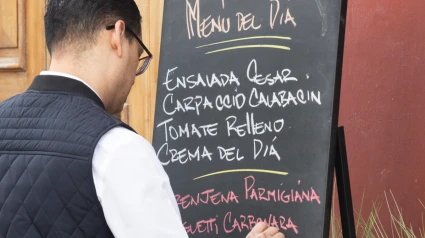 Menú del Diá
Ensalada Cesar.
Carpaccio Calabacin
Tomate Relleno
Crema del Diá
Parmigiána
Carbonara